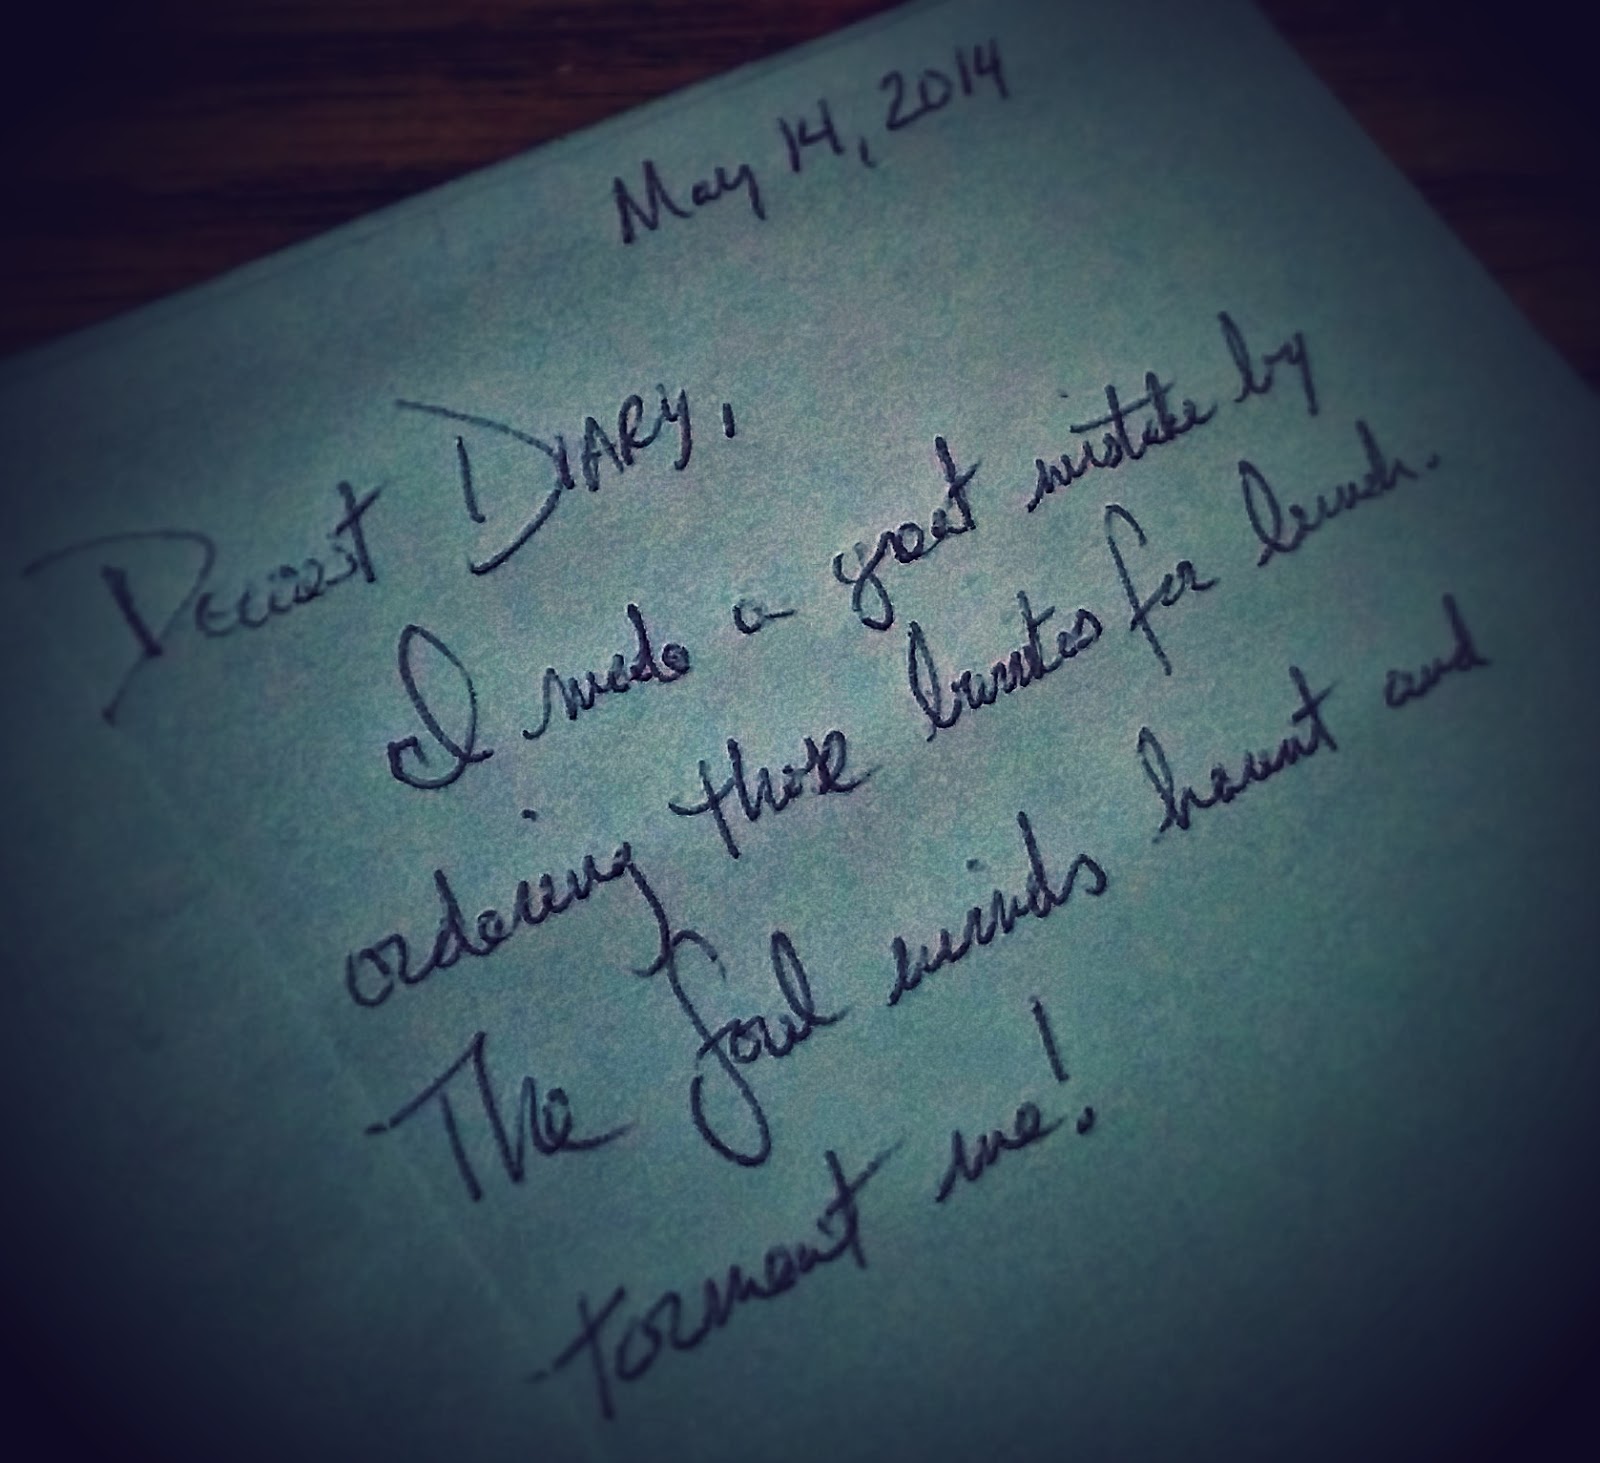 May 14, 2014
Dearest DIARY,
I made a great mistake by
ordering those burritos for lunch.
The foul winds haunt and
torment me!